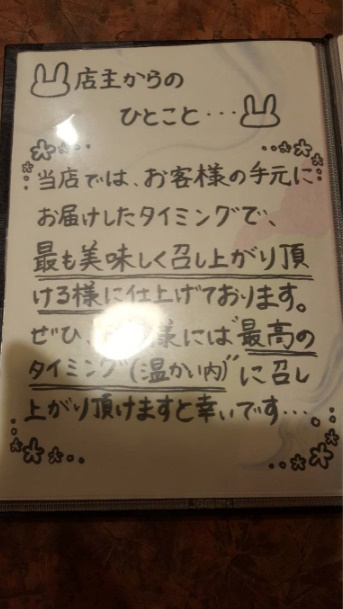 店主からの
ひとこと・・・
当店では、お客様の手元に
お届けしたタイミングで、
最も美味しく召し上がり頂
ける様に仕上げております。
ぜひ、 様には"最高の
タイミング(温かい内)"に召し
上がり頂けますと幸いです・・・